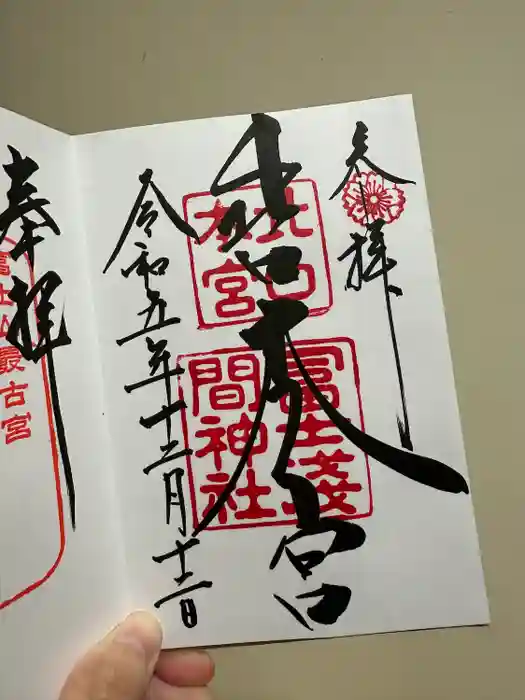 奉拝
北口本宮
北口
本宮
冨士淺
間神社
令和五年十二月十二日
奉拝
富士山最古宮